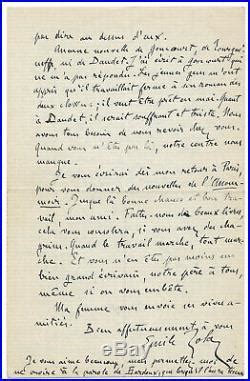 pas dire au dessus d'eux.
Aucune nouvelle de Goncourt, de Tourgué-
neff, ni de Daudet. J'ai écrit à Goncourt qui
ne m'a pas répondu. Des jeunes gens m'ont
appris qu'il travaillait ferme à son roman des
deux clowns; il veut être prêt en mai. Quant
à Daudet, il serait souffrant et triste. Nous
avons tous besoin de vous revoir chez vous.
Quand vous n'êtes pas là, notre centre nous
manque.
Je vous écrirai dès mon retour à Paris,
pour vous donner des nouvelles de l'Assom-
moir. Jusque là bonne chance et bon travail,
mon ami. Faites-nous de beaux livres,
cela vous consolera, si vous avez du cha-
grin. Quand le travail marche, tout mar-
che. Et vous n'en êtes pas moins un
bien grand écrivain, notre père à tous,
même si on vous embête.
Ma femme vous envoie ses vives a-
mitiés.
Bien affectueusement à vous
Emile Zola
Je vous aime beaucoup, mais permettez-moi de
ne croire à la parole de Bardoux, que lorsqu'il